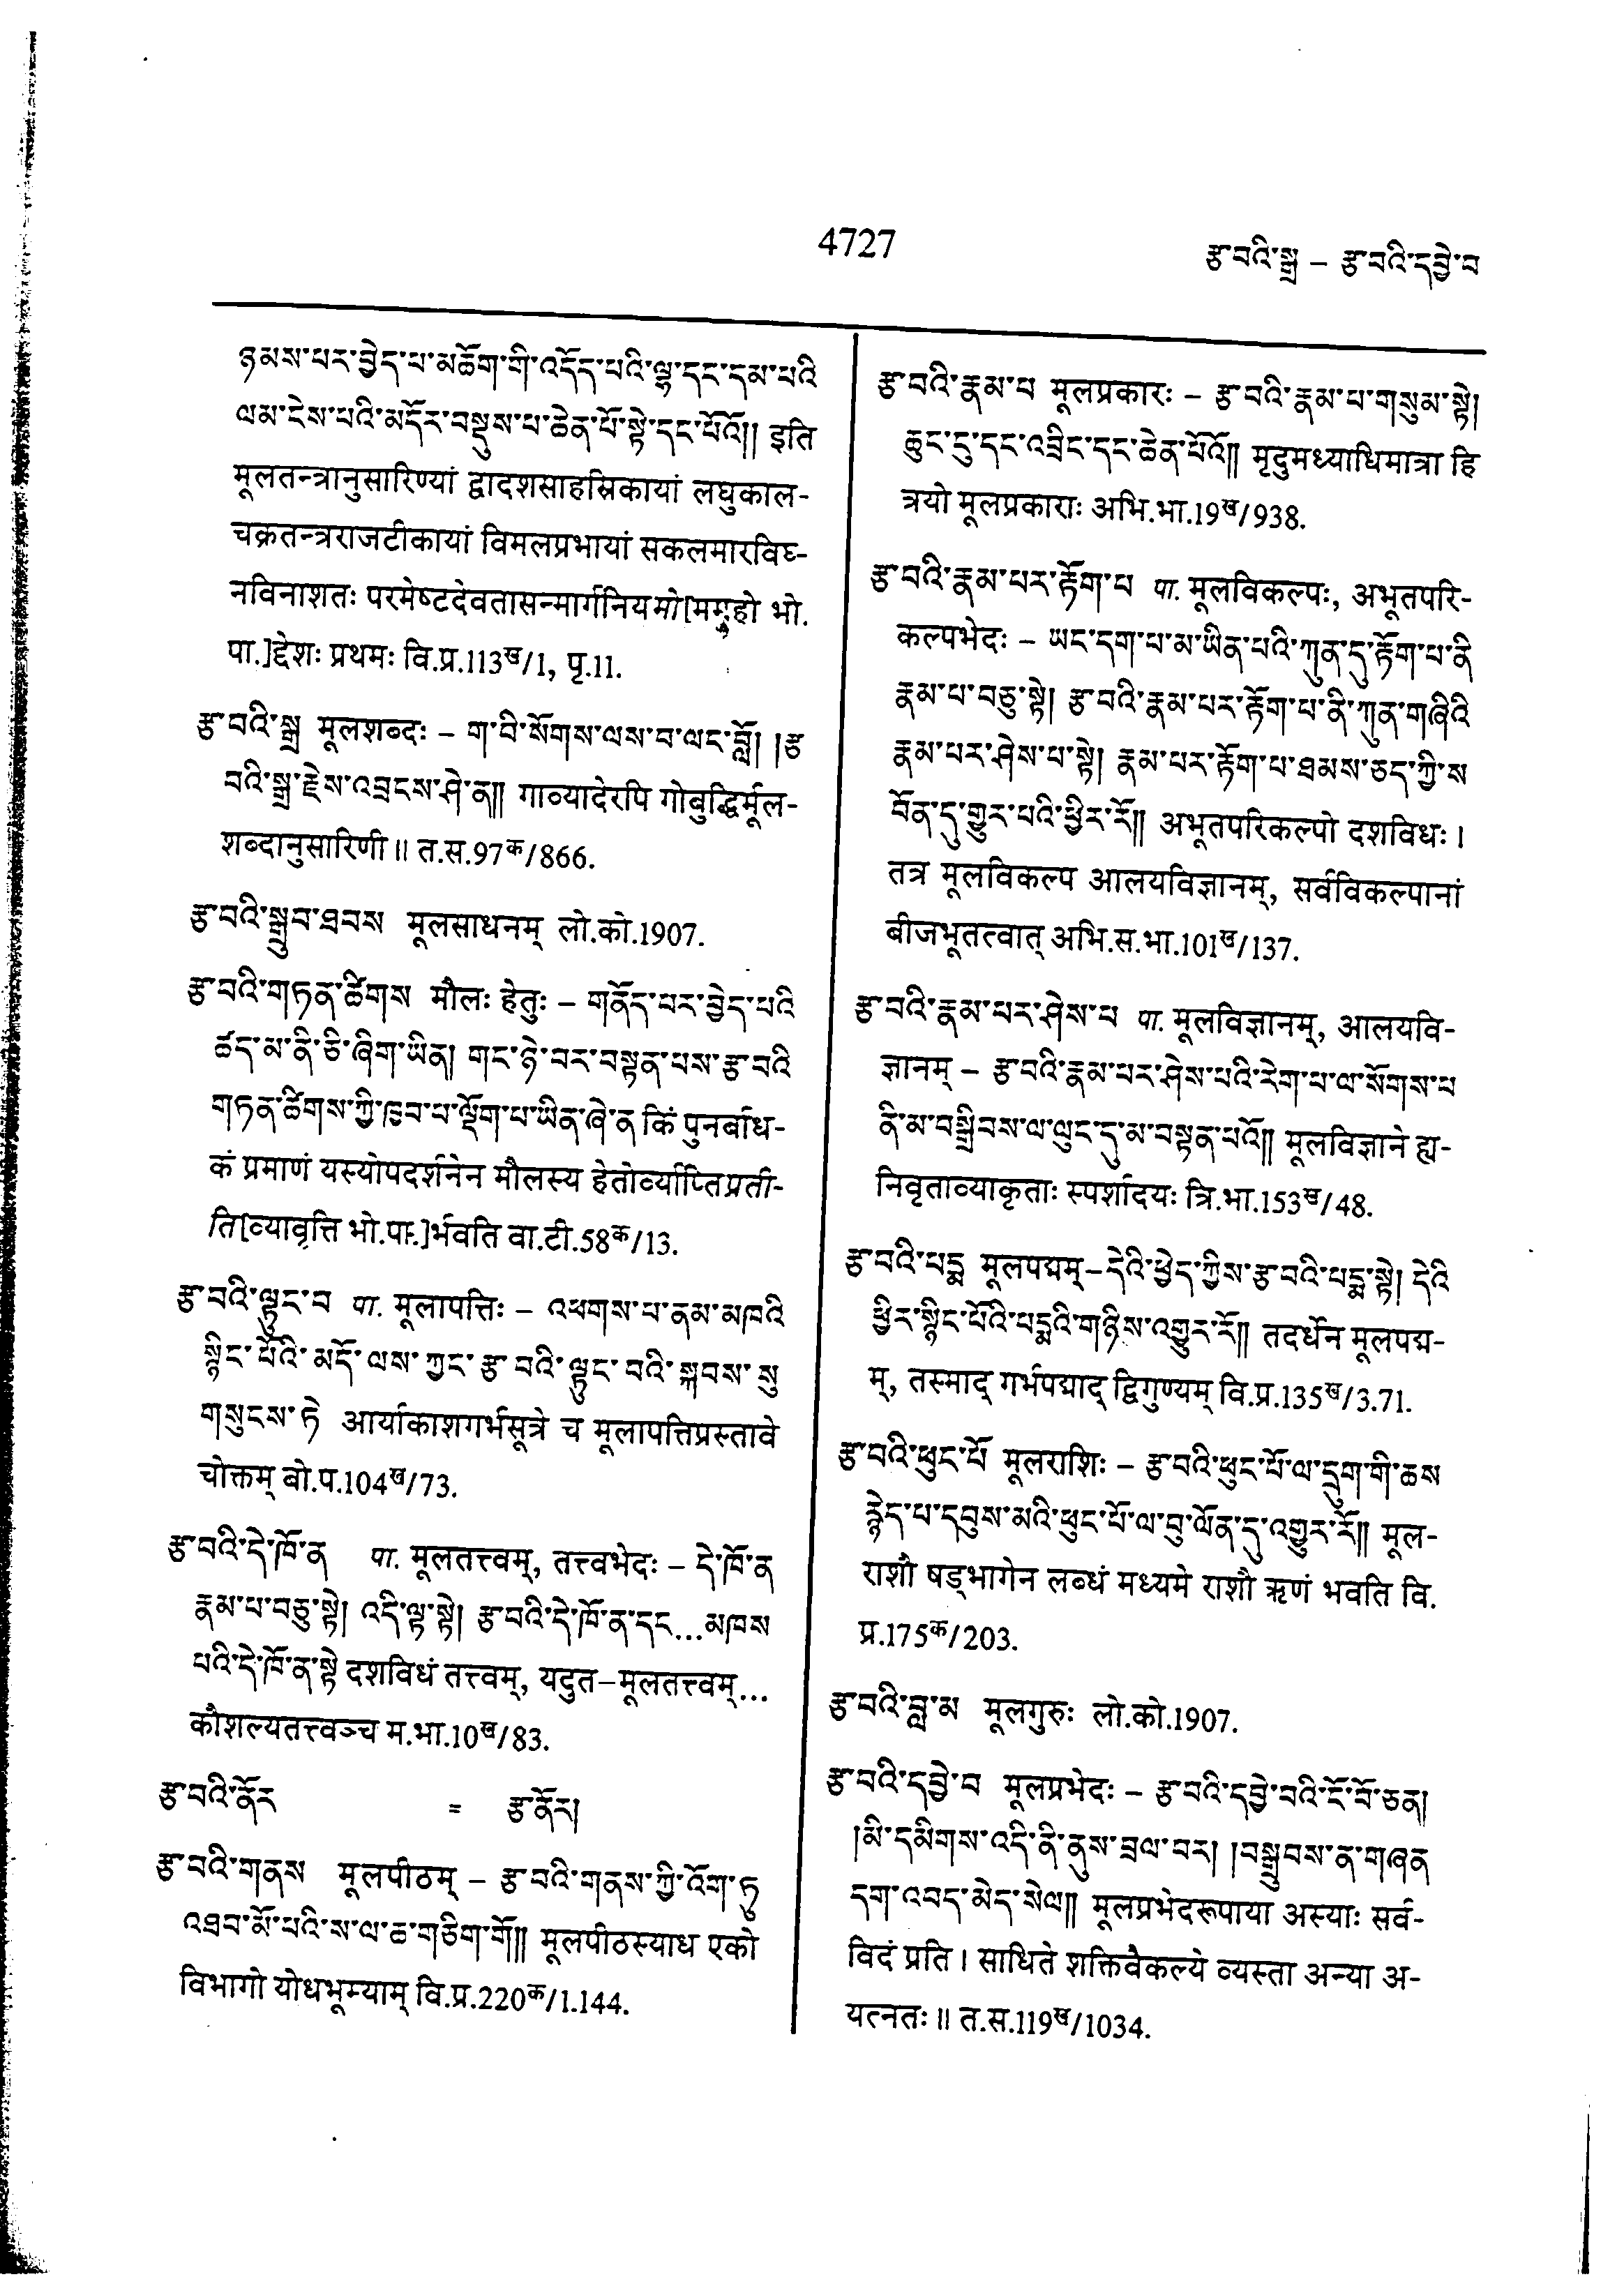 4727
རྩ་བའི་སྒྲ – རྩ་བའི་དབྱེ་བ
ཉམས་པར་བྱེད་པ་མཆོག་གི་འདོད་པའི་ལྷ་དང་དམ་པའི
ལམ་ངེས་པའི་མདོར་བསྡུས་པ་ཆེན་པོ་སྟེ་དང་པོའོ།། इति
मूलतन्त्रानुसारिण्यां द्वादशसाहस्रिकायां लघुकाल-
चक्रतन्त्रराजटीकायां विमलप्रभायां सकलमारविघ्-
नविनाशतः परमेष्टदेवतासन्मार्गनियमो[ममहो भो.
पा.]द्देशः प्रथमः वि.प्र.113ख/1, पृ.11.
རྩ་བའི་སྒྲ मूलशब्दः – ག་བི་སོགས་ལས་བ་ལང་བློ། །རྩ
བའི་སྒྲ་རྗེས་འབྲངས་ཤེ་ན།། गाव्यादेरपि गोबुद्धिर्मूल-
शब्दानुसारिणी॥ त.स.97क/866.
རྩ་བའི་སྒྲུབ་ཐབས मूलसाधनम् लो.को.1907.
རྩ་བའི་གཏན་ཚིགས मौलः हेतुः – གནོད་པར་བྱེད་པའི
ཚད་མ་ནི་ཅི་ཞིག་ཡིན། གང་ཉེ་བར་བསྟན་པས་རྩ་བའི
གཏན་ཚིགས་ཀྱི་ཁྱབ་པ་ལྡོག་པ་ཡིན་ཞེ་ན किं पुनर्बाध-
कं प्रमाणं यस्योपदर्शनेन मौलस्य हेतोर्व्याप्तिप्रती-
ति[व्यावृत्ति भो.पा.]र्भवति वा.टी.58क/13.
རྩ་བའི་ལྟུང་བ पा. मूलापत्तिः – འཕགས་པ་ནམ་མཁའི
སྙིང་པོའི་མདོ་ལས་ཀྱང་རྩ་བའི་ལྟུང་བའི་སྐབས་སུ
གསུངས་ཏེ आर्याकाशगर्भसूत्रे च मूलापत्तिप्रस्तावे
चोक्तम् बो.प.104ख/73.
རྩ་བའི་དེ་ཁོ་ན पा. मूलतत्त्वम्, तत्त्वभेदः – དེ་ཁོ་ན
རྣམ་པ་བཅུ་སྟེ། འདི་ལྟ་སྟེ། རྩ་བའི་དེ་ཁོ་ན་དང...མཁས
པའི་དེ་ཁོ་ན་སྟེ दशविधं तत्त्वम्, यदुत–मूलतत्त्वम्...
कौशल्यतत्त्वञ्च म.भा.10ख/83.
རྩ་བའི་ནོར = རྩ་ནོར།
རྩ་བའི་གནས मूलपीठम् – རྩ་བའི་གནས་ཀྱི་འོག་ཏུ
འཐབ་མོ་པའི་ས་ལ་ཆ་གཅིག་གོ།། मूलपीठस्याध एको
विभागो योधभूम्याम् वि.प्र.220क/1.144.
རྩ་བའི་རྣམ་པ मूलप्रकारः – རྩ་བའི་རྣམ་པ་གསུམ་སྟེ།
ཆུང་ངུ་དང་འབྲིང་དང་ཆེན་པོའོ།། मृदुमध्याधिमात्रा हि
त्रयो मूलप्रकाराः अभि.भा.19ख/938.
རྩ་བའི་རྣམ་པར་རྟོག་པ पा. मूलविकल्पः, अभूतपरि-
कल्पभेदः – ཡང་དག་པ་མ་ཡིན་པའི་ཀུན་ཏུ་རྟོག་པ་ནི
རྣམ་པ་བཅུ་སྟེ། རྩ་བའི་རྣམ་པར་རྟོག་པ་ནི་ཀུན་གཞིའི
རྣམ་པར་ཤེས་པ་སྟེ། རྣམ་པར་རྟོག་པ་ཐམས་ཅད་ཀྱི་ས
བོན་དུ་གྱུར་པའི་ཕྱིར་རོ།། अभूतपरिकल्पो दशविधः।
तत्र मूलविकल्प आलयविज्ञानम्, सर्वविकल्पानां
बीजभूतत्वात् अभि.स.भा.101ख/137.
རྩ་བའི་རྣམ་པར་ཤེས་པ पा. मूलविज्ञानम्, आलयवि-
ज्ञानम् – རྩ་བའི་རྣམ་པར་ཤེས་པའི་རེག་པ་ལ་སོགས་པ
ནི་མ་བསྒྲིབས་ལ་ལུང་དུ་མ་བསྟན་པའོ།། मूलविज्ञाने ह्य-
निवृताव्याकृताः स्पर्शादयः त्रि.भा.153ख/48.
རྩ་བའི་པདྨ मूलपद्मम्–དེའི་ཕྱེད་ཀྱིས་རྩ་བའི་པདྨ་སྟེ། དེའི
ཕྱིར་སྙིང་པོའི་པདྨའི་གཉིས་འགྱུར་རོ།། तदर्धेन मूलपद्म-
म्, तस्माद् गर्भपद्माद् द्विगुण्यम् वि.प्र.135ख/3.71.
རྩ་བའི་ཕུང་པོ मूलराशिः – རྩ་བའི་ཕུང་པོ་ལ་དྲུག་གི་ཆས
རྙེད་པ་དབུས་མའི་ཕུང་པོ་ལ་བུ་ལོན་དུ་འགྱུར་རོ།། मूल-
राशौ षड्भागेन लब्धं मध्यमे राशौ ऋणं भवति वि.
प्र.175क/203.
རྩ་བའི་བླ་མ मूलगुरुः लो.को.1907.
རྩ་བའི་དབྱེ་བ मूलप्रभेदः – རྩ་བའི་དབྱེ་བའི་ངོ་བོ་ཅན།
།མི་དམིགས་འདི་ནི་ནུས་བྲལ་བར། །བསྒྲུབས་ན་གཞན
དག་འབད་མེད་སེལ།། मूलप्रभेदरूपाया अस्याः सर्व-
विदं प्रति। साधिते शक्तिवैकल्ये व्यस्ता अन्या अ-
यत्नतः॥ त.स.119ख/1034.